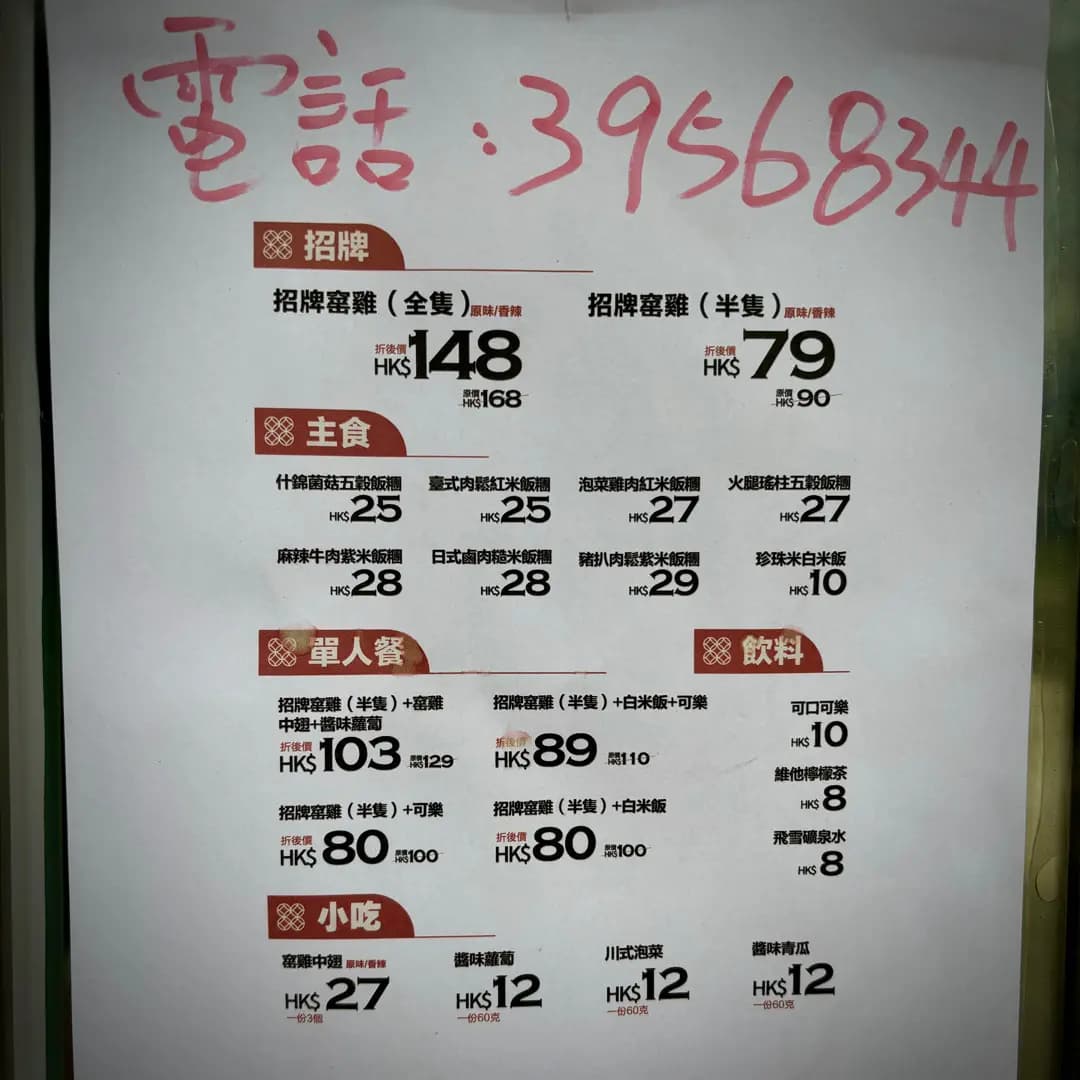 電話:39568344
招牌
招牌窑雞(全隻)原味/香辣
折後價
HK$148
原價
HK$168
招牌窑雞(半隻)原味/香辣
折後價
HK$79
原價
HK$90
主食
什錦菌菇五穀飯糰
HK$25
臺式肉鬆紅米飯糰
HK$25
泡菜雞肉紅米飯糰
HK$27
火腿瑤柱五穀飯糰
HK$27
麻辣牛肉紫米飯糰
HK$28
日式鹵肉糙米飯糰
HK$28
豬扒肉鬆紫米飯糰
HK$29
珍珠米白米飯
HK$10
單人餐
招牌窑雞(半隻)+窑雞
中翅+醬味蘿蔔
折後價
HK$103
原價
HK$129
招牌窑雞(半隻)+白米飯+可樂
折後價
HK$89
原價
HK$110
招牌窑雞(半隻)+可樂
折後價
HK$80
原價
HK$100
招牌窑雞(半隻)+白米飯
折後價
HK$80
原價
HK$100
飲料
可口可樂
HK$10
維他檸檬茶
HK$8
飛雪礦泉水
HK$8
小吃
窑雞中翅 原味/香辣
HK$27
一份3個
醬味蘿蔔
HK$12
一份60克
川式泡菜
HK$12
一份60克
醬味青瓜
HK$12
一份60克